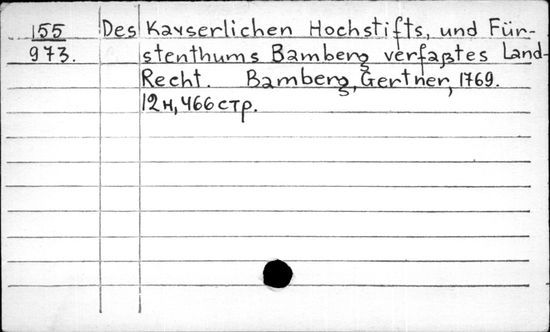 155 Des Kayserlichen Hochstifts, und Für-
973. stenthums Bamberg verfaßtes Land-
Recht. Bamberg, Gertner, 1769.
12н, 466 стр.